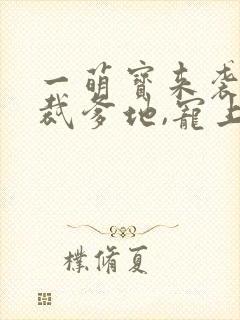 一萌寶来袭
裁爹地,寵上
樸脩夏